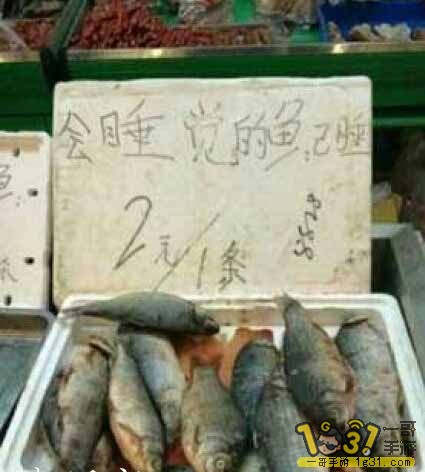 会睡觉的鱼:已睡
2元/1条
鱼:
一哥手游
一哥手游 1g31.com